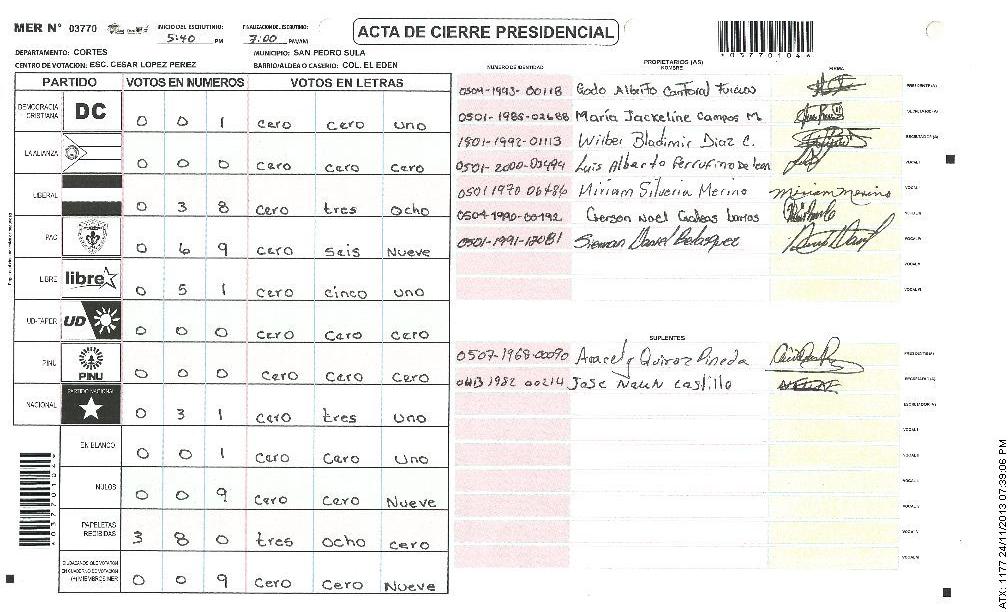 MER N° 03770
INICIO DEL ESCRUTINIO:
5:40 PM
FINALIZACION DEL ESCRUTINIO:
7:00 PM/AM
ACTA DE CIERRE PRESIDENCIAL
DEPARTAMENTO: CORTES
MUNICIPIO: SAN PEDRO SULA
CENTRO DE VOTACION: ESC. CESAR LOPEZ PEREZ
BARRIO/ALDEA O CASERIO: COL. EL EDEN
PARTIDO VOTOS EN NUMEROS VOTOS EN LETRAS
DEMOCRACIA CRISTIANA DC 0 0 1 cero cero uno
LA ALIANZA 0 0 0 cero cero cero
LIBERAL 0 3 8 cero tres ocho
PAC 0 6 9 cero seis Nueve
LIBRE libre 0 5 1 cero cinco uno
UD-FAPER UD 0 0 0 cero cero cero
PINU PINU 0 0 0 cero cero cero
NACIONAL PARTIDO NACIONAL 0 3 1 cero tres uno
EN BLANCO 0 0 1 cero cero uno
NULOS 0 0 9 cero cero Nueve
PAPELETAS RECIBIDAS 3 8 0 tres ocho cero
CIUDADANOS QUE VOTARON EN CUADERNO DE VOTACION (+) MIEMBROS MER 0 0 9 cero cero Nueve
NUMERO DE IDENTIDAD
PROPIETARIOS (AS)
NOMBRE
FIRMA
0504-1993-00118 Alberto PRESIDENTE(A)
0501-1985-02688 María Jackeline Campos M. SECRETARIO(A)
1801-1992-01113 Wilber Bladimir Diaz C. ESCRUTADOR(A)
0501-2000-03494 Luis Alberto Perrufino De leon VOCAL I
0501 1970 06486 Miriam Silveria Merino Miriam Merino VOCAL II
0504-1990-00192 Gerson Noel VOCAL III
0501-1991-17081 Daniel Velasquez VOCAL IV
VOCAL V
VOCAL VI
SUPLENTES
0507-1968-00090 Aracely Quiroz Pineda PRESIDENTE(A)
0413 1982 00214 Jose Nahun Castillo SECRETARIO(A)
ESCRUTADOR(A)
VOCAL I
VOCAL II
VOCAL III
VOCAL IV
VOCAL V
VOCAL VI
ATX: 1177 24/11/2013 07:39:06 PM